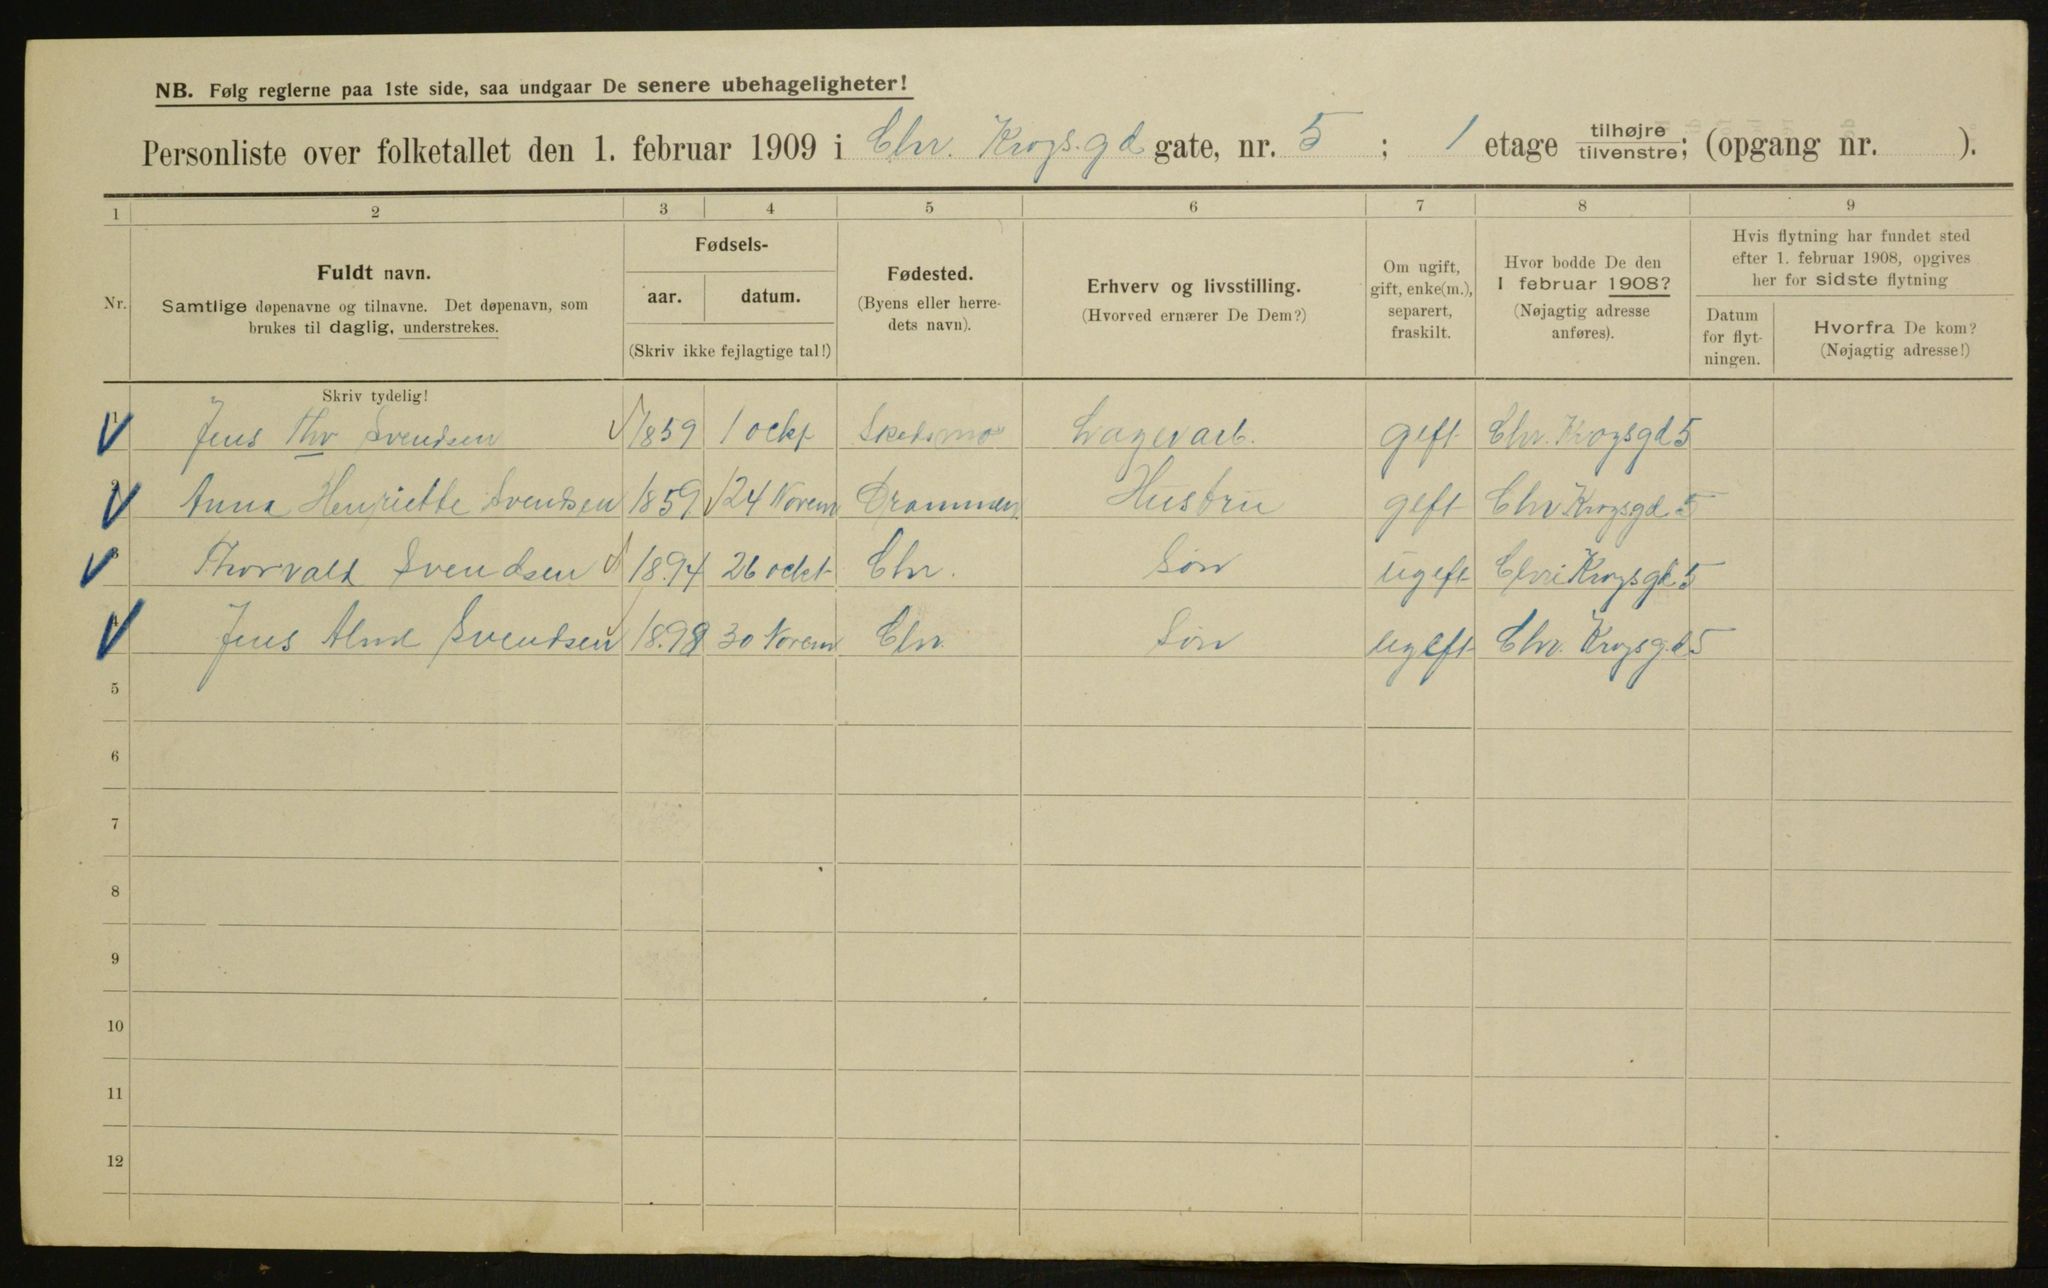 NB. Følg reglerne paa 1ste side, saa undgaar De senere ubehageligheter!
Personliste over folketallet den 1. februar 1909 i Chr. Krogs.gd gate, nr. 5 ; 1 etage tilhøjre tilvenstre; (opgang nr. ).
1 2 3 4 5 6 7 8 9
Nr.
Fuldt navn.
Samtlige døpenavne og tilnavne. Det døpenavn, som
brukes til daglig, understrekes.
Fødsels-
aar. datum.
(Skriv ikke fejlagtige tal!)
Fødested.
(Byens eller herre-
dets navn).
Erhverv og livsstilling.
(Hvorved ernærer De Dem?)
Om ugift,
gift, enke(m.),
separert,
fraskilt.
Hvor bodde De den
1 februar 1908?
(Nøjagtig adresse
anføres).
Hvis flytning har fundet sted
efter 1. februar 1908, opgives
her for sidste flytning
Datum
for flyt-
ningen.
Hvorfra De kom?
(Nøjagtig adresse!)
Skriv tydelig!
1 Jens Thv Svendsen 1859 1 ockt Skedsmo Lagerarb. geft Chr. Krogsgd 5
2 Anna Henriette Svendsen 1859 24 Novem Drammen Hustru geft Chr Krogsgd 5
3 Thorvald Svendsen 1894 26 ockt Chr. Søn ugeft Chri Krogsgd 5
4 Jens Svendsen 1898 30 Novem Chr. Søn ugeft Chr. Krogsg.d 5
5
6
7
8
9
10
11
12